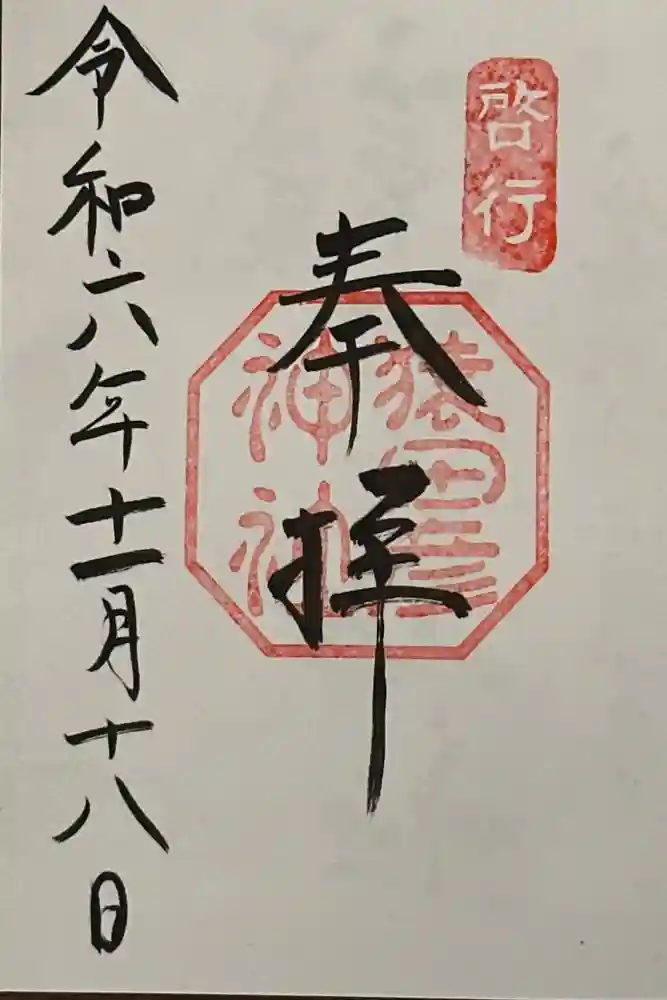 啓行
奉拝
猿田彦
神社
令和六年十一月十八日